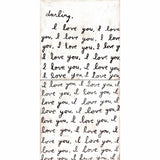 darling,
I love you, I love
you, I love you, I love
you, I love you, I love
you, I love you, I love
I love you I love you
I love you I love you
I love you I love you
I love you I love you
I love you I love you
I love you I love you
I love you I love you
I love you I love you